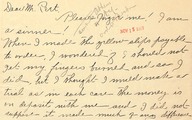 Dear Mr. Port.
Please forgive me! I am
a sinner!
NOV 15
When I made the yellow slips payable
to order I wondered if I should not
get my fingers burned and say I
did, but I thought I would make a
trial as in each case the money is
on deposit with me and I did not
suppose it made much if any difference